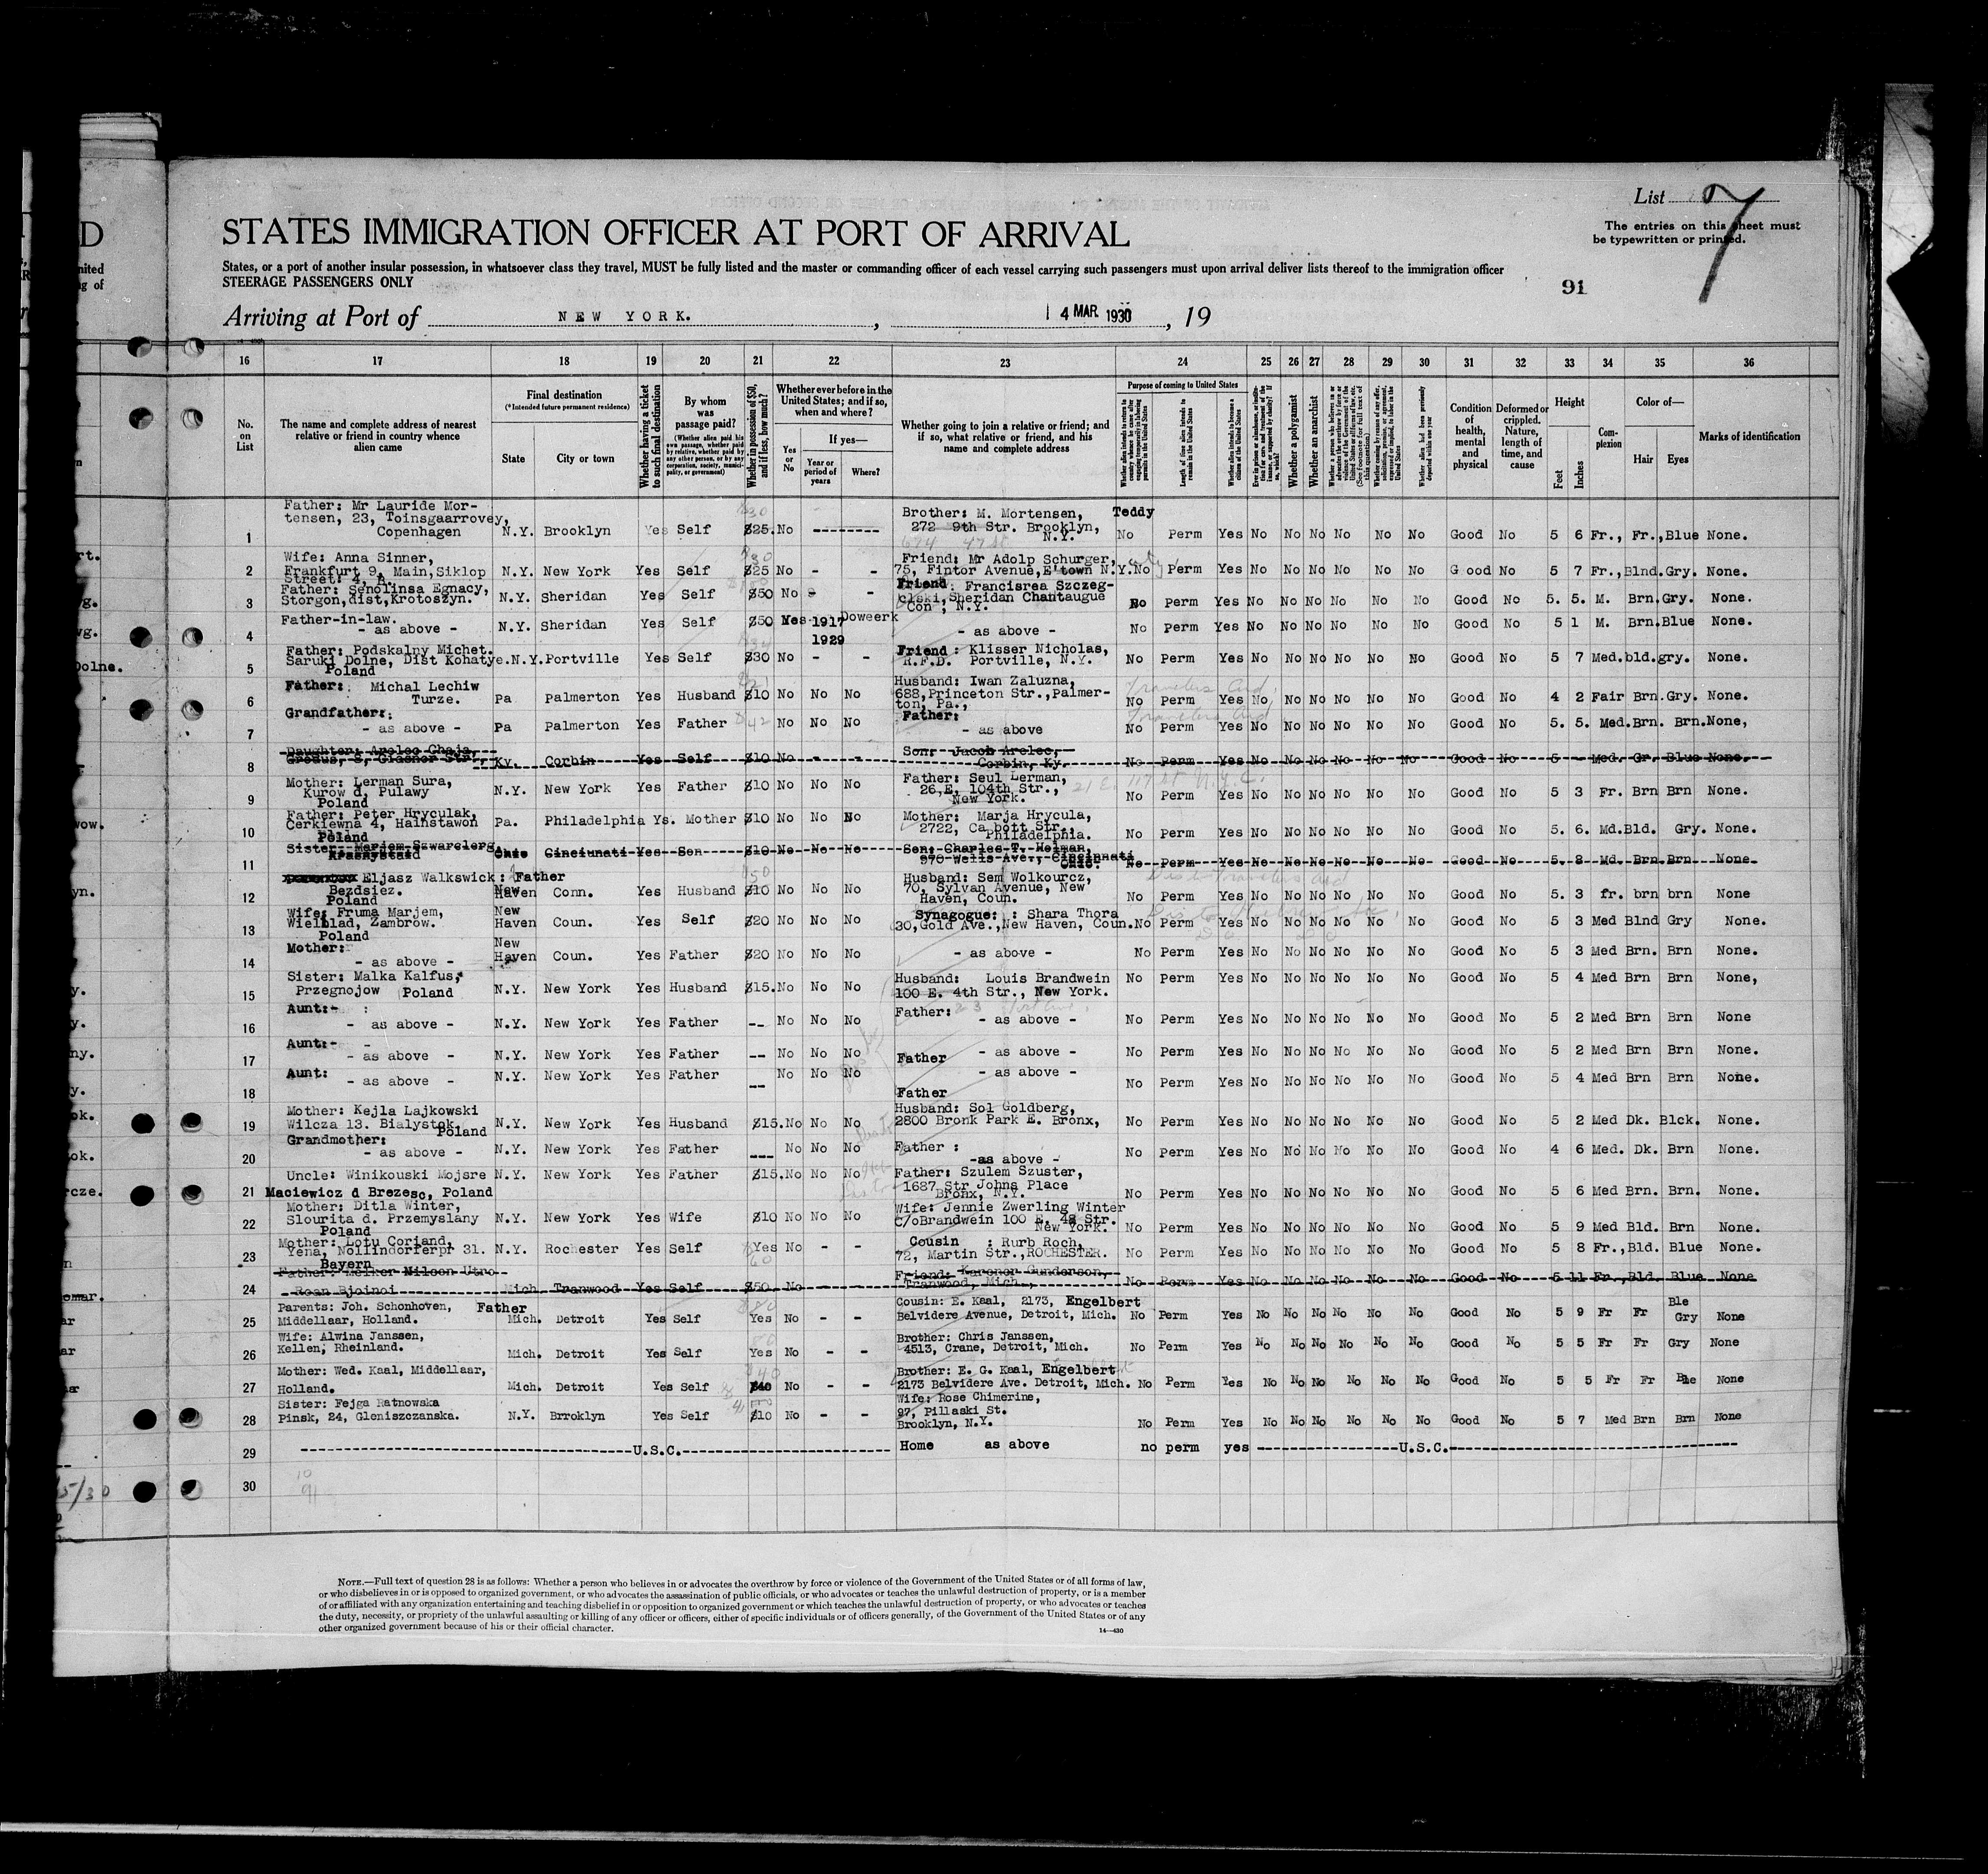 List 7
The entries on this sheet must
be typewritten or printed.
STATES IMMIGRATION OFFICER AT PORT OF ARRIVAL
States, or a port of another insular possession, in whatsoever class they travel, MUST be fully listed and the master or commanding officer of each vessel carrying such passengers must upon arrival deliver lists thereof to the immigration officer
STEERAGE PASSENGERS ONLY
91
Arriving at Port of NEW YORK. , 14 MAR 1930 , 19
16 17 18 19 20 21 22 23 24 25 26 27 28 29 30 31 32 33 34 35 36
No. on List
The name and complete address of nearest relative or friend in country whence alien came
Final destination
(*Intended future permanent residence)
State
City or town
Whether having a ticket to such final destination
By whom was passage paid?
(Whether alien paid his own passage, whether paid by relative, whether paid by any other person, or by any corporation, society, municipality, or government)
Whether in possession of $50, and if less, how much?
Whether ever before in the United States; and if so, when and where?
Yes or No
If yes—
Year or period of years
Where?
Whether going to join a relative or friend; and if so, what relative or friend, and his name and complete address
Purpose of coming to United States
Length of time alien intends to remain in the United States
Whether alien intends to become a citizen of the United States
Whether a polygamist
Whether an anarchist
Condition of health, mental and physical
Deformed or crippled. Nature, length of time, and cause
Height
Feet
Inches
Complexion
Color of—
Hair
Eyes
Marks of identification
1 Father: Mr Lauride Mortensen, 23, Toinsgaarrovey, Copenhagen N.Y. Brooklyn Yes Self $25. No -------- Brother: M. Mortensen, Teddy 272 9th Str. Brooklyn, N.Y. No Perm Yes No No No No No No Good No 5 6 Fr., Fr., Blue None.
2 Wife: Anna Sinner, Frankfurt 9, Main, Siklop Street: 4, N.Y. New York Yes Self $25 No - - Friend: Mr Adolp Schurger, 75, Fintor Avenue, E'town N.Y. No Perm Yes No No No No No No Good No 5 7 Fr., Blnd. Gry. None.
3 Father: Senolinsa Egnacy, Storgon, dist, Krotoszyn. N.Y. Sheridan Yes Self $50 No Friend: Francisrea Szczegelski, Sheridan Chantaugue Con, N.Y. No Perm Yes No No No No No No Good No 5. 5. M. Brn. Gry. None.
4 Father-in-law. - as above - N.Y. Sheridan Yes Self $50 Yes 1917 1929 Doweerk - as above - No Perm Yes No No No No No No Good No 5 1 M. Brn. Blue None.
5 Father: Podskalny Michet. Saruki Dolne, Dist Kohatye. Poland N.Y. Portville Yes Self $30 No - - Friend: Klisser Nicholas, R.F.D. Portville, N.Y. No Perm Yes No No No No No No Good No 5 7 Med. bld. gry. None.
6 Father: Michal Lechiw Turze. Pa Palmerton Yes Husband $10 No No No Husband: Iwan Zaluzna, 688, Princeton Str., Palmerton, Pa., Travelers Aid No Perm Yes No No No No No No Good No 4 2 Fair Brn. Gry. None.
7 Grandfather: - as above - Pa Palmerton Yes Father $42 No No No Father: - as above Travelers Aid No Perm Yes No No No No No No Good No 5. 5. Med. Brn. Brn. None,
8 Daughter: Arelec Chaja, Ky. Corbin Yes Self $10 No - - Son: Jacob Arelec, Corbin, Ky. No Perm Yes No No No No No No Good No 5 - Med. Gr. Blue None.
9 Mother: Lerman Sura, Kurow d, Pulawy Poland N.Y. New York Yes Father $10 No No No Father: Seul Lerman, 26, E. 104th Str., New York. 21 E. 117 st N.Y.C. No Perm Yes No No No No No No Good No 5 3 Fr. Brn Brn None.
10 Father: Peter Hryculak, Cerkiewna 4, Hainstawon Poland Pa. Philadelphia Ys. Mother $10 No No No Mother: Marja Hrycula, 2722, Ca bott Str., Philadelphia. No Perm Yes No No No No No No Good No 5. 6. Md. Bld. Gry. None.
11 Sister: Marjem Szwarcferg, Krasnystaid Ohio Cinciunati Yes Son $10 No No No Son: Charles T. Helman, 970 Wells Ave., Cincinnati Ohio. No Perm Yes No No No No No No Good No 5. 2 Md. Brn Brn None.
12 Eljasz Walkswick: Father Bezdsiez. Poland New Haven Conn. Yes Husband $10 No No No Husband: Sem Wolkourcz, 70, Sylvan Avenue, New Haven, Coun. No Perm Yes No No No No No No Good No 5. 3 fr. brn brn None
13 Wife: Fruma Marjem, Wielblad, Zambrow. Poland New Haven Coun. Yes Self $20 No No No Synagogue: : Shara Thora 30, Gold Ave., New Haven, Coun. No Perm Yes No No No No No No Good No 5 3 Med Blnd Gry None.
14 Mother: - as above - New Haven Coun. Yes Father $20 No No No - as above - No Perm Yes No No No No No No Good No 5 3 Med Brn. Brn None.
15 Sister: Malka Kalfus, Przegnojow Poland N.Y. New York Yes Husband $15. No No No Husband: Louis Brandwein 100 E. 4th Str., New York. No Perm Yes No No No No No No Good No 5 4 Med Brn Brn None,
16 Aunt:- - as above - N.Y. New York Yes Father -- No No No Father: - as above - No Perm Yes No No No No No No Good No 5 2 Med Brn Brn None
17 Aunt:- - as above - N.Y. New York Yes Father -- No No No Father - as above - No Perm Yes No No No No No No Good No 5 2 Med Brn Brn None.
18 Aunt: - as above - N.Y. New York Yes Father -- No No No - as above - Father No Perm Yes No No No No No No Good No 5 4 Med Brn Brn None.
19 Mother: Kejla Lajkowski Wilcza 13. Bialystok, Poland N.Y. New York Yes Husband $15. No No No Husband: Sol Goldberg, 2800 Bronk Park E. Bronx, No Perm Yes No No No No No No Good No 5 2 Med Dk. Blck. None.
20 Grandmother: - as above - N.Y. New York Yes Father --- No No No Father : -as above - No Perm Yes No No No No No No Good No 4 6 Med. Dk. Brn None.
21 Uncle: Winikouski Mojsre Maciewicz d Brezesc, Poland N.Y. New York Yes Father $15. No No No Father: Szulem Szuster, 1687 Str Johns Place Bronx, N.Y. No Perm Yes No No No No No No Good No 5 6 Med Brn. Brn. None.
22 Mother: Ditla Winter, Slourita d. Przemyslany Poland N.Y. New York Yes Wife $10 No No No Wife: Jennie Zwerling Winter c/oBrandwein 100 E. 4 Str. New York. No Perm Yes No No No No No No Good No 5 9 Med Bld. Brn None.
23 Mother: Lotu Corland, Yena, Nollindorferpr 31. Bayern N.Y. Rochester Yes Self Yes No - - Cousin : Rurb Roch, 72, Martin Str., ROCHESTER. No Perm Yes No No No No No No Good No 5 8 Fr., Bld. Blue None.
24 Father: Melker Nilson Utno Roan Bjoinoi Mich. Tranwood Yes Self $50 No - - Friend: Karoner Gunderson, Tranwood, Mich., No Perm Yes No No No No No No Good No 5 11 Fr., Bld. Blue None
25 Parents: Joh. Schonhoven, Father Middellaar, Holland. Mich. Detroit Yes Self Yes No - - Cousin: E. Kaal, 2173, Engelbert Belvidere Avenue, Detroit, Mich. No Perm Yes No No No No No No Good No 5 9 Fr Fr Ble Gry None
26 Wife: Alwina Janssen, Kellen, Rheinland. Mich. Detroit Yes Self Yes No - - Brother: Chris Janssen, 4513, Crane, Detroit, Mich. No Perm Yes No No No No No No Good No 5 5 Fr Fr Gry None
27 Mother: Wed. Kaal, Middellaar, Holland. Mich. Detroit Yes Self $40 No - - Brother: E. G. Kaal, Engelbert 2173 Belvidere Ave. Detroit, Mich. No Perm Yes No No No No No No Good No 5 5 Fr Fr Ble None
28 Sister: Fejga Ratnowska Pinsk, 24, Gleniszczanska. N.Y. Brrooklyn Yes Self $10 No - - Wife: Rose Chimerine, 97, Pillaski St. Brooklyn, N.Y. No Perm Yes No No No No No No Good No 5 7 Med Brn Brn None
29 U.S.C. Home as above no perm yes U.S.C.
30
NOTE.—Full text of question 28 is as follows: Whether a person who believes in or advocates the overthrow by force or violence of the Government of the United States or of all forms of law,
or who disbelieves in or is opposed to organized government, or who advocates the assassination of public officials, or who advocates or teaches the unlawful destruction of property, or is a member
of or affiliated with any organization entertaining and teaching disbelief in or opposition to organized government or which teaches the unlawful destruction of property, or who advocates or teaches
the duty, necessity, or propriety of the unlawful assaulting or killing of any officer or officers, either of specific individuals or of officers generally, of the Government of the United States or of any
other organized government because of his or their official character.
14—430